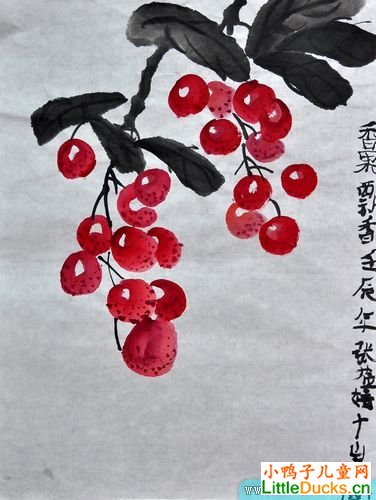 香果飘香壬辰年张
十岁
小鸭子儿童网
LittleDucks.cn